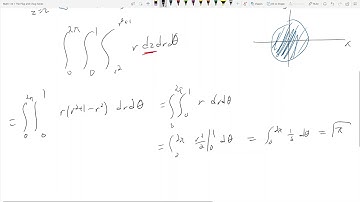 ∫₀^{2π} ∫₀^{1} ∫_{r²}^{r²+1} r dz dr dθ
x
= ∫₀^{2π} ∫₀^{1} r(r²+1-r²) dr dθ = ∫₀^{2π} ∫₀^{1} r dr dθ
= ∫₀^{2π} r²/2 |₀^{1} dθ = ∫₀^{2π} 1/2 dθ = π